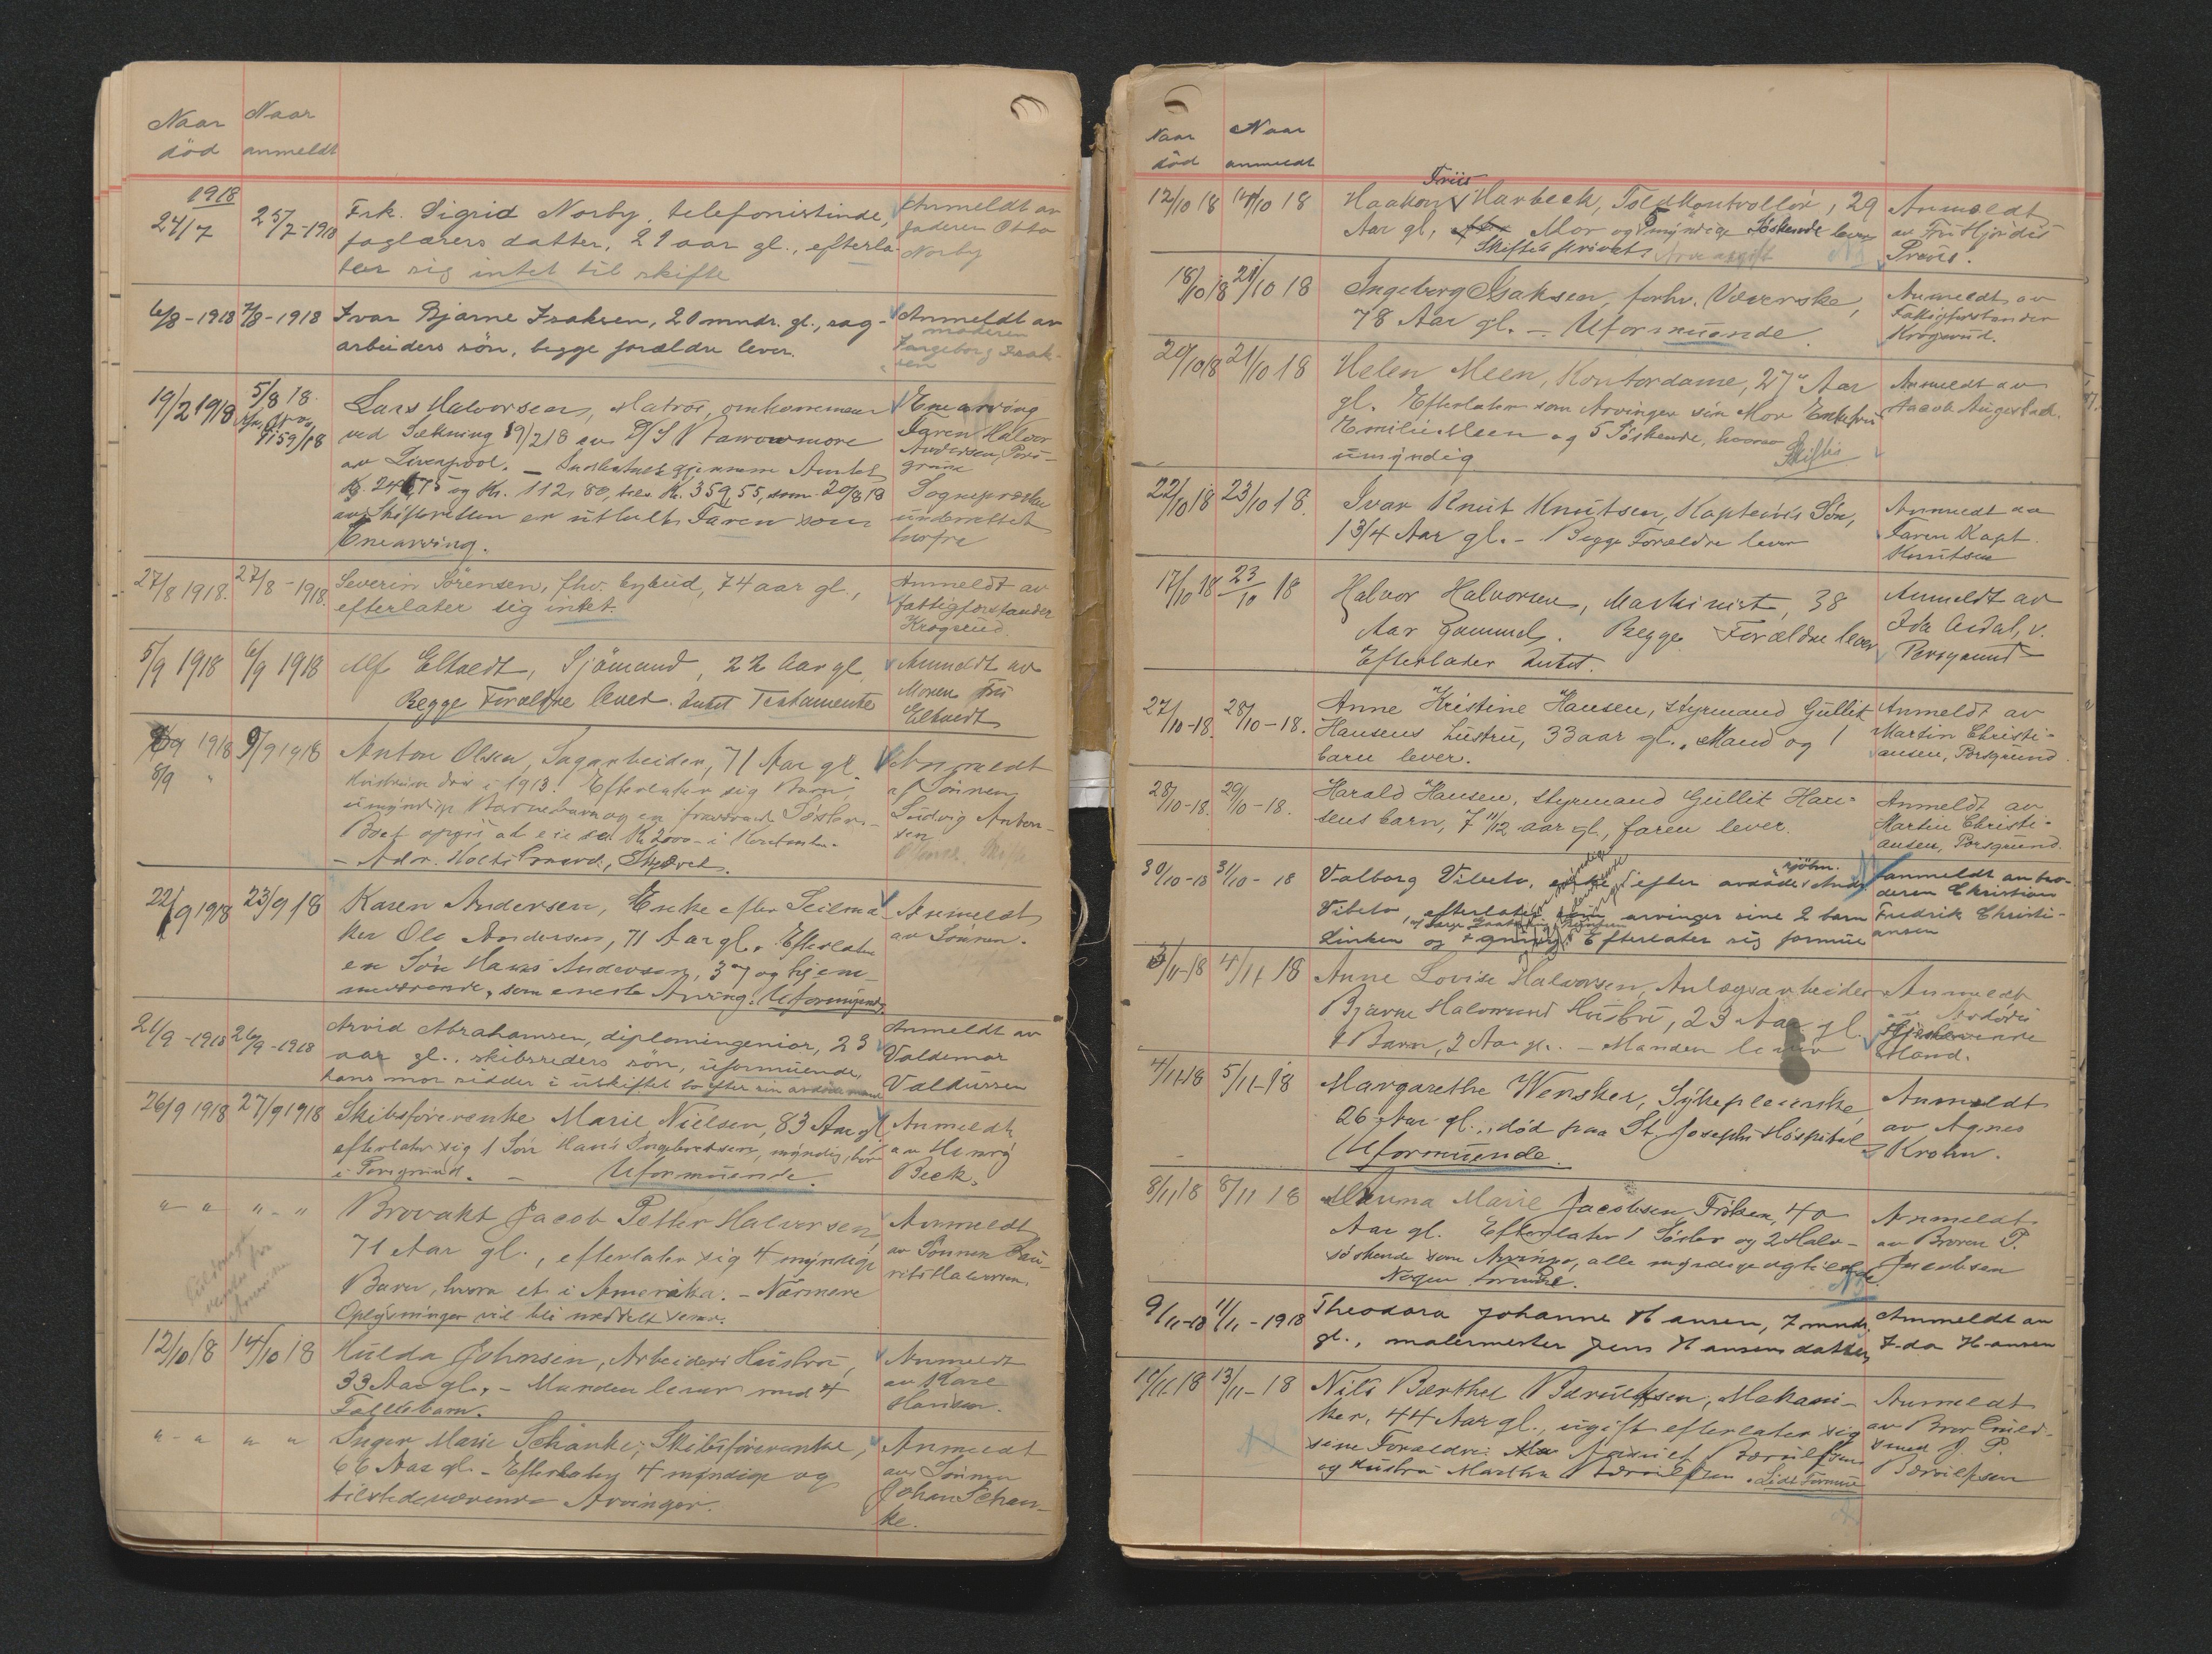 Naar død
Naar anmeldt
1918
24/7
25/7-1918
Frk. Sigrid Norby, telefonistinde,
faglærers datter, 21 aar gl., efterla-
ter sig intet til skifte
Anmeldt av
faderen Otto
Norby
6/8-1918
7/8-1918
Ivar Bjarne Isaksen, 20 mndr. gl., sag-
arbeiders søn, begge forældre lever.
Anmeldt av
moderen
Ingeborg Isak-
sen
19/2 1918
5/8 18.
Lars Halvorsen, Matros, omkommen
ved Sænkning 19/2 18 av D/S Barrowmore
av Liverpool. – Innbetalt gjennem Amtet
og Kr. 112,80, tils. Kr. 359,55, som 20/8 18
av Skifteretten er utbetalt Faren som
Enearving.
Enearving
Faren Halvor
Andersen, Pors-
grund
Sognepræsten
underrettet
herfra
27/8 1918.
27/8-1918.
Severin Sørensen, fhv. bybud, 74 aar gl.,
efterlater sig intet.
Anmeldt av
fattigforstander
Krogsrud.
5/9 1918
6/9 1918
Alf Eltvedt, Sjømand, 22 Aar gl.
Begge Forældre lever. Intet Testamente
Anmeldt av
Moren Fru
Eltvedt
1918
8/9 "
9/9 1918
Anton Olsen, Sagarbeider, 71 Aar gl.
Hustruen død i 1913. Efterlater sig Barn,
umyndige Barnebarn og en fraværende Søster.
Boet opgis at eie ca. Kr. 2000 i Kontanter.
Anmeldt
af Sønnen
Ludvig Anton-
sen
22/9 1918
23/9 18
Karen Andersen, Enke efter Seilma-
ker Ole Andersen, 71 Aar gl. Efterlater
en Søn Hans Andersen, 37 og hjem-
meværende, som eneste Arving. Uformuende
Anmeldt
av Sønnen.
21/9-1918
26/9-1918
Arvid Abrahamsen, diplomingeniør, 23
aar gl., skibsreders søn, uformuende,
hans mor sidder i uskiftet bo efter sin avdøde mand
Anmeldt av
Valdemar
Valdursen
26/9 1918
27/9 1918
Skibsførerenke Marie Nielsen, 83 Aar gl.
efterlater sig 1 Søn Hans Ingebretsen, myndig, bor
i Porsgrund. – Uformuende.
Anmeldt
av Henry
Beck.
" "
" - "
Brovakt Jacob Petter Halvorsen,
71 Aar gl., efterlater sig 4 myndige
Barn, hvorav et i Amerika. – Nærmere
Oplysninger vil bli meddelt senere.
Anmeldt
av Sønnen Lau-
rits Halvorsen.
12/10 18
14/10 18
Hulda Johnsen, Arbeiders Hustru,
33 Aar gl. – Manden lever med 4
Fællesbarn.
Anmeldt
av Kare
Hansen.
" - "
" "
Inger Marie Schanke, Skibsførerenke,
66 Aar gl. – Efterlater 4 myndige og
tilstedeværende Arvinger.
Anmeldt
av Sønnen
Johan Schan-
ke.
Naar død
Naar anmeldt
12/10 18
14/10 18
Friis
Haakon Harbeck, Toldkontrollør, 29
Aar gl, Mor og 5 myndige Søskende lever
Skiftes privat. Arveavgift
Anmeldt
av Fru Hjørdis
Friis.
18/10 18
21/10 18
Ingeborg Isaksen, forhv. Væverske,
78 Aar gl. – Uformuende.
Anmeldt av
Fattigforstander
Krogsrud.
20/10 18
21/10 18
Helen Meen, Kontordame, 27 Aar
gl. Efterlater som Arvinger sin Mor Enkefru
Emilie Meen og 5 Søskende, hvorav
umyndig
Skiftes
Anmeldt av
Jacob Augestad.
22/10 18
23/10 18.
Ivar Knut Knutsen, Kapteins Søn,
1 3/4 Aar gl. – Begge Forældre lever
Anmeldt av
Faren Kapt.
Knutsen
17/10 18
23/10 18
Halvor Halvorsen, Maskinist, 38
Aar gammel. Begge Forældre lever
Efterlader Intet.
Anmeldt av
Ida Aidal, v.
Porsgrund
27/10-18.
28/10-18.
Anne Kristine Hansen, styrmand Gullik
Hansens hustru, 33 aar gl., Mand og 1
barn lever.
Anmeldt av
Martin Christi-
ansen, Porsgrund.
28/10-18.
29/10-18.
Harald Hansen, styrmand Gullik Han-
sens barn, 7 11/12 aar gl., faren lever.
Anmeldt av
Martin Christi-
ansen, Porsgrund.
30/10-18
31/10-18
sjøm.
Valborg Vibeto, enke efter avdøde Andr.
Vibeto, efterlater som arvinger sine 2 barn
Linken og Efterlater sig formue
anmeldt av bro-
deren Christian
Fredrik Christi-
ansen
3/11-18
4/11 18
Anne Lovise Halvorsen, Anlægsarbeider
Bjarne Halvorsens Hustru, 23 Aar gl.
1 Barn, 2 Aar gl. – Manden lever
Anmeldt
av Avdødes
Mand.
4/11-18
5/11-18
Margarethe Wensker, Sykepleierske,
26 Aar gl., død paa St. Josephs Hospital
Uformuende.
Anmeldt
av Agnes
Krohn.
8/11 18
8/11 18
Marie Jacobsen, Frøken, 40
Aar gl. Efterlater 1 Søster og 2 Halv-
søskende som Arvinger, alle myndige og tilstede.
Nogen formue.
Anmeldt
av Broren P.
Jacobsen
9/11-18
11/11-1918
Theodora Johanne Hansen, 7 mndr.
gl., malermester Jens Hansens datter,
Anmeldt av
Ida Hansen
10/11-18
13/11-18
Nils Barthel Bærulfsen, Mekani-
ker, 44 Aar gl., ugift efterlater sig
sine Forældre: Bærulfsen
og Hustru Marthe Bærulfsen. Lidt Formue
Anmeldt
av Bror Guld-
smed J. P.
Bærulfsen